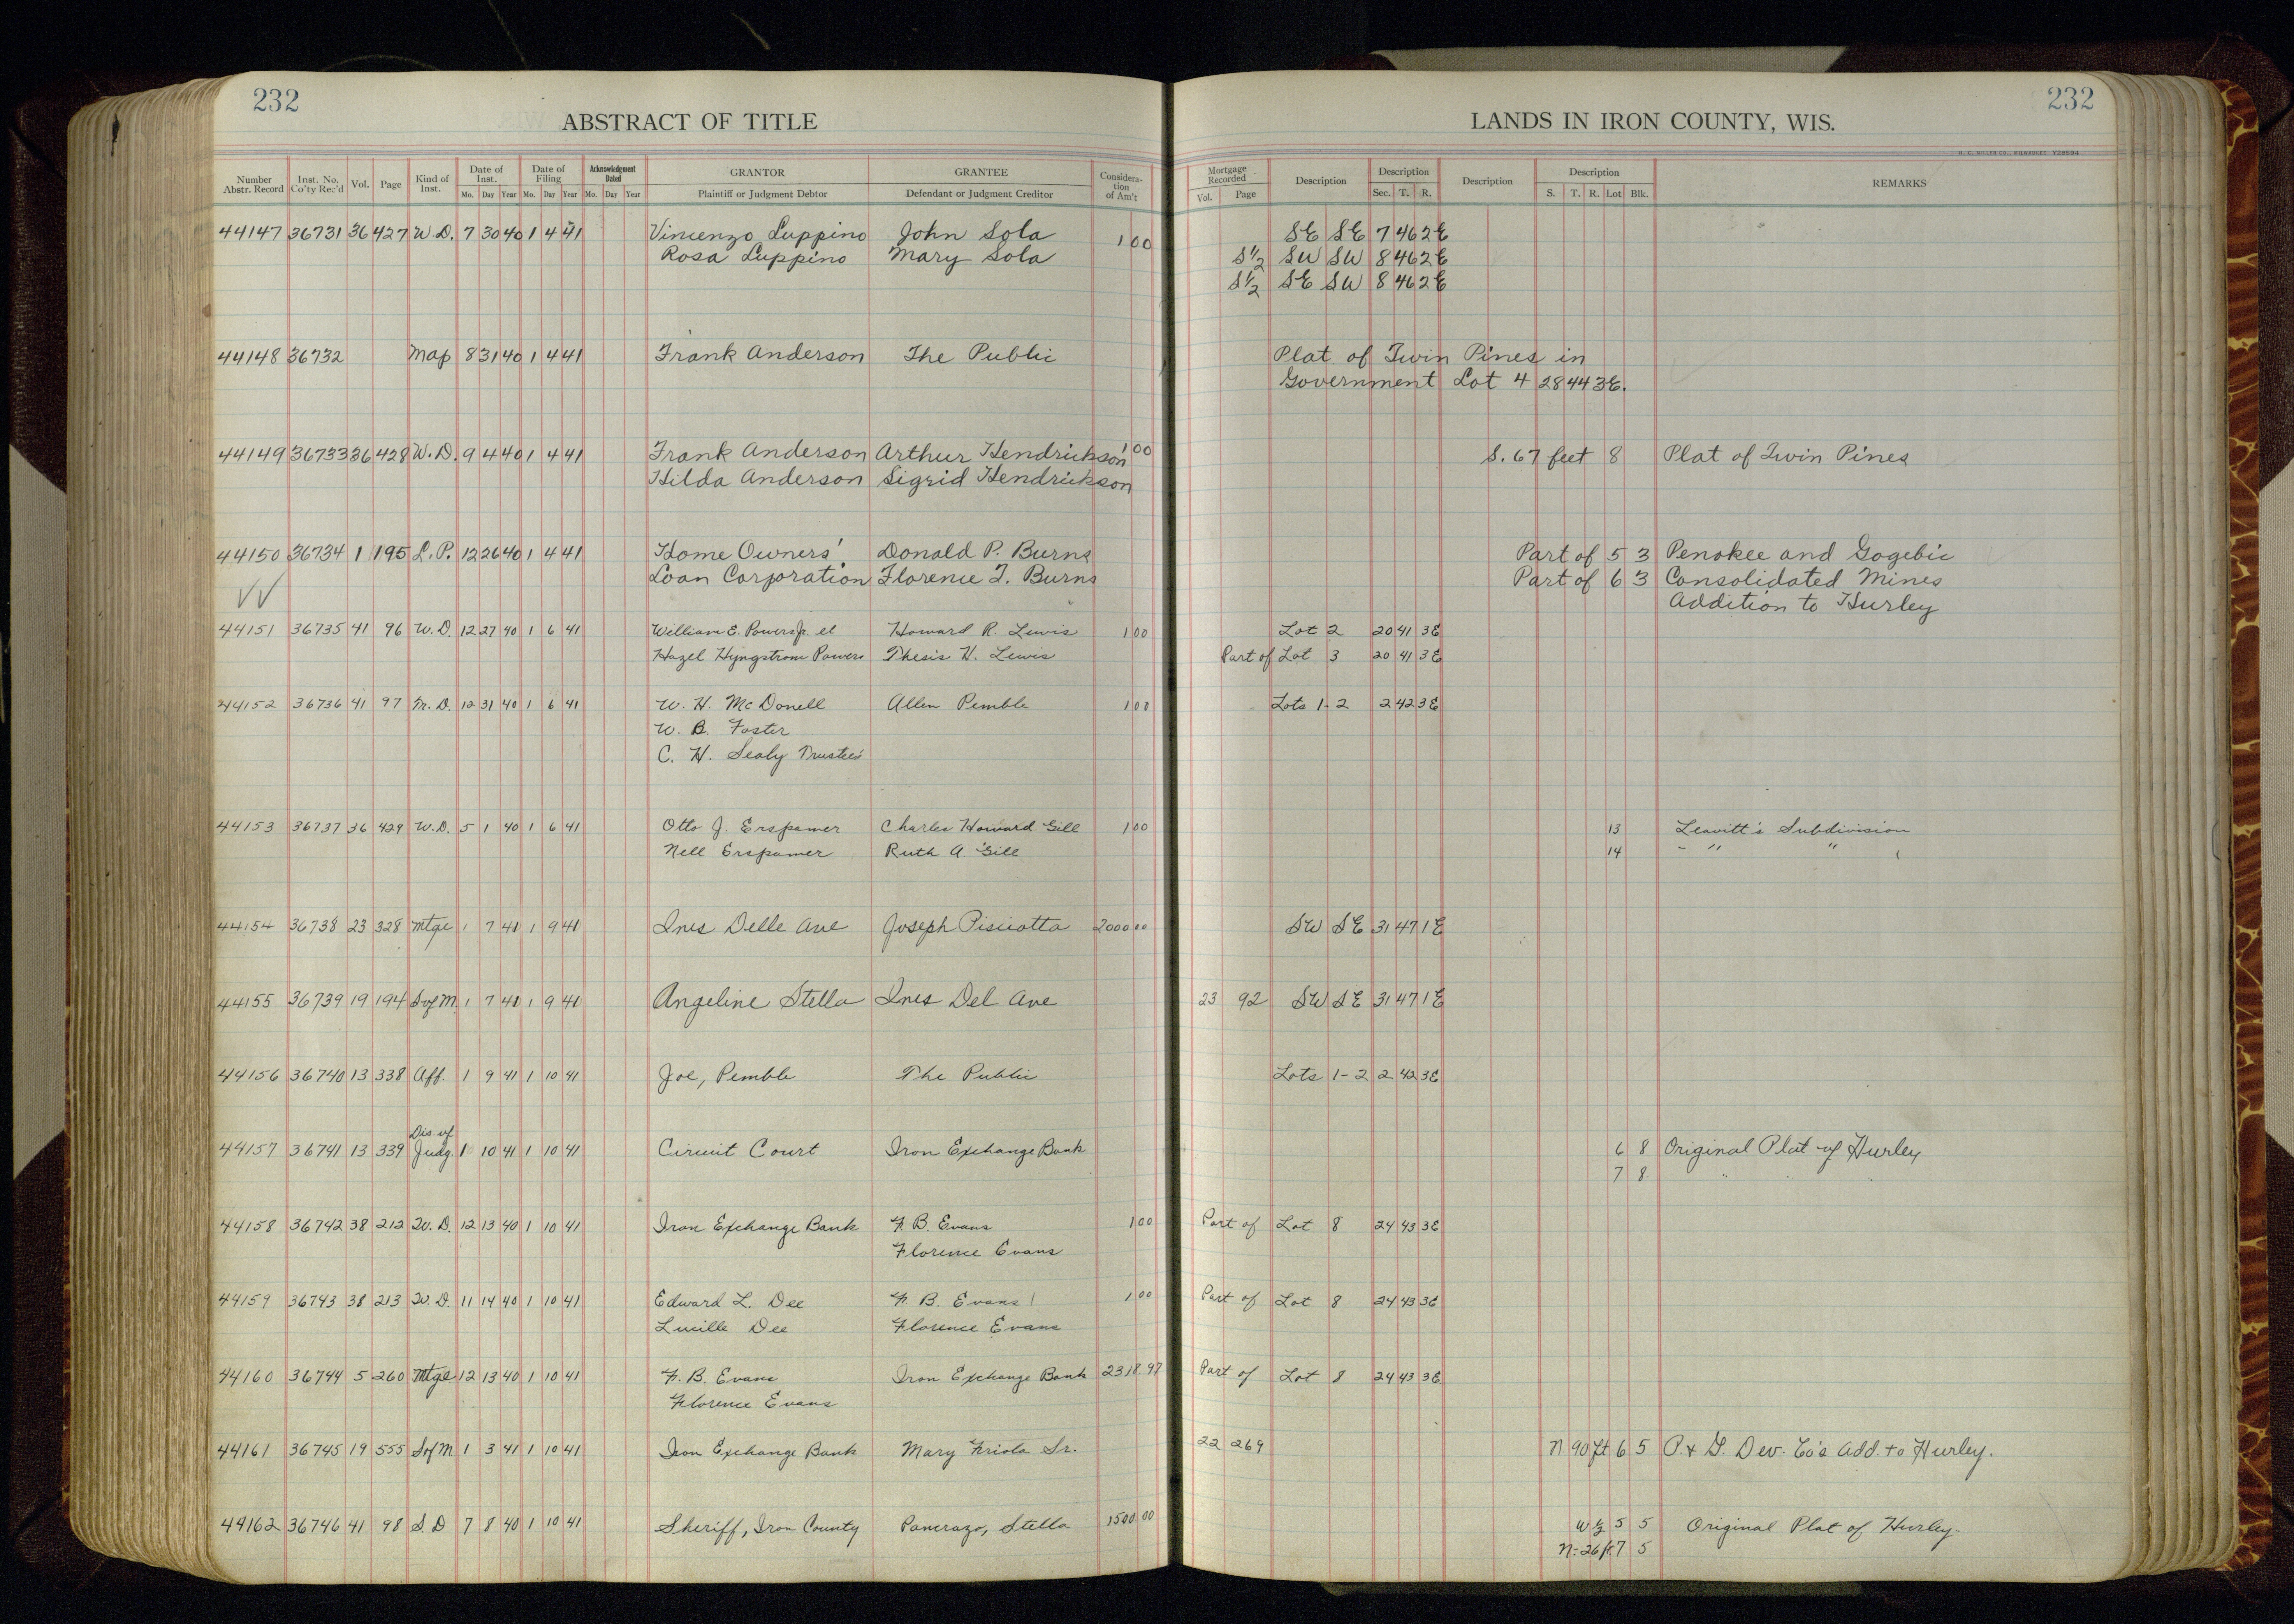 232
ABSTRACT OF TITLE
LANDS IN IRON COUNTY, WIS.
232
H. C. MILLER CO., MILWAUKEE
Number Abstr. Record | Inst. No. Co'ty Rec'd | Vol. | Page | Kind of Inst. | Date of Inst. Mo. Day Year | Date of Filing Mo. Day Year | Acknowledgment Dated Mo. Day Year | GRANTOR Plaintiff or Judgment Debtor | GRANTEE Defendant or Judgment Creditor | Consideration of Am't | Mortgage Recorded Vol. Page | Description | Description Sec. T. R. | Description | Description S. T. R. Lot Blk. | REMARKS
44147 36731 36 427 W.D. 7 30 40 1 4 41 Vincenzo Luppino John Sola 1 00 SE SE 7 46 2E
Rosa Luppino Mary Sola S½ SW SW 8 46 2E
S½ SE SW 8 46 2E
44148 36732 Map 8 31 40 1 4 41 Frank Anderson The Public Plat of Twin Pines in
Government Lot 4 28 44 3E.
44149 36733 36 428 W.D. 9 4 40 1 4 41 Frank Anderson Arthur Hendrickson 1 00 S. 67 feet 8 Plat of Twin Pines
Hilda Anderson Sigrid Hendrickson
44150 36734 1 195 L.P. 12 26 40 1 4 41 Home Owners' Donald P. Burns Part of 5 3 Penokee and Gogebic
Loan Corporation Florence T. Burns Part of 6 3 Consolidated Mines
Addition to Hurley
44151 36735 41 96 W.D. 12 27 40 1 6 41 William E. Powers Jr. et Howard R. Lewis 1 00 Lot 2 20 41 3E
Hazel Hyngstrom Powers Thesis H. Lewis Part of Lot 3 20 41 3E
44152 36736 41 97 M.D. 12 31 40 1 6 41 W. H. McDonell Allen Pemble 1 00 Lots 1-2 2 42 3E
W. B. Foster
C. H. Sealy Trustees
44153 36737 36 429 W.D. 5 1 40 1 6 41 Otto J. Erspamer Charles Howard Gill 1 00 13 Leavitt's Subdivision
Nell Erspamer Ruth A. Gill 14 " " "
44154 36738 23 328 Mtge 1 7 41 1 9 41 Ines Delle Ave Joseph Pisciotta 2000 00 SW SE 31 47 1E
44155 36739 19 194 S of M. 1 7 41 1 9 41 Angeline Stella Ines Del Ave 23 92 SW SE 31 47 1E
44156 36740 13 338 Aff. 1 9 41 1 10 41 Joe, Pemble The Public Lots 1-2 2 42 3E
Dis. of
44157 36741 13 339 Judg. 1 10 41 1 10 41 Circuit Court Iron Exchange Bank 6 8 Original Plat of Hurley
7 8 " " "
44158 36742 38 212 W.D. 12 13 40 1 10 41 Iron Exchange Bank F. B. Evans 1 00 Part of Lot 8 24 43 3E
Florence Evans
44159 36743 38 213 W.D. 11 14 40 1 10 41 Edward L. Dee F. B. Evans 1 00 Part of Lot 8 24 43 3E
Lucille Dee Florence Evans
44160 36744 5 260 Mtge 12 13 40 1 10 41 F. B. Evans Iron Exchange Bank 2318.97 Part of Lot 8 24 43 3E
Florence Evans
44161 36745 19 555 S of M 1 3 41 1 10 41 Iron Exchange Bank Mary Friola Sr. 22 269 N 90 ft 6 5 P. & G. Dev. Co's Add. to Hurley.
44162 36746 41 98 S.D 7 8 40 1 10 41 Sheriff, Iron County Pancrazo, Stella 1500.00 W ½ 5 5 Original Plat of Hurley.
N-26 ft. 7 5